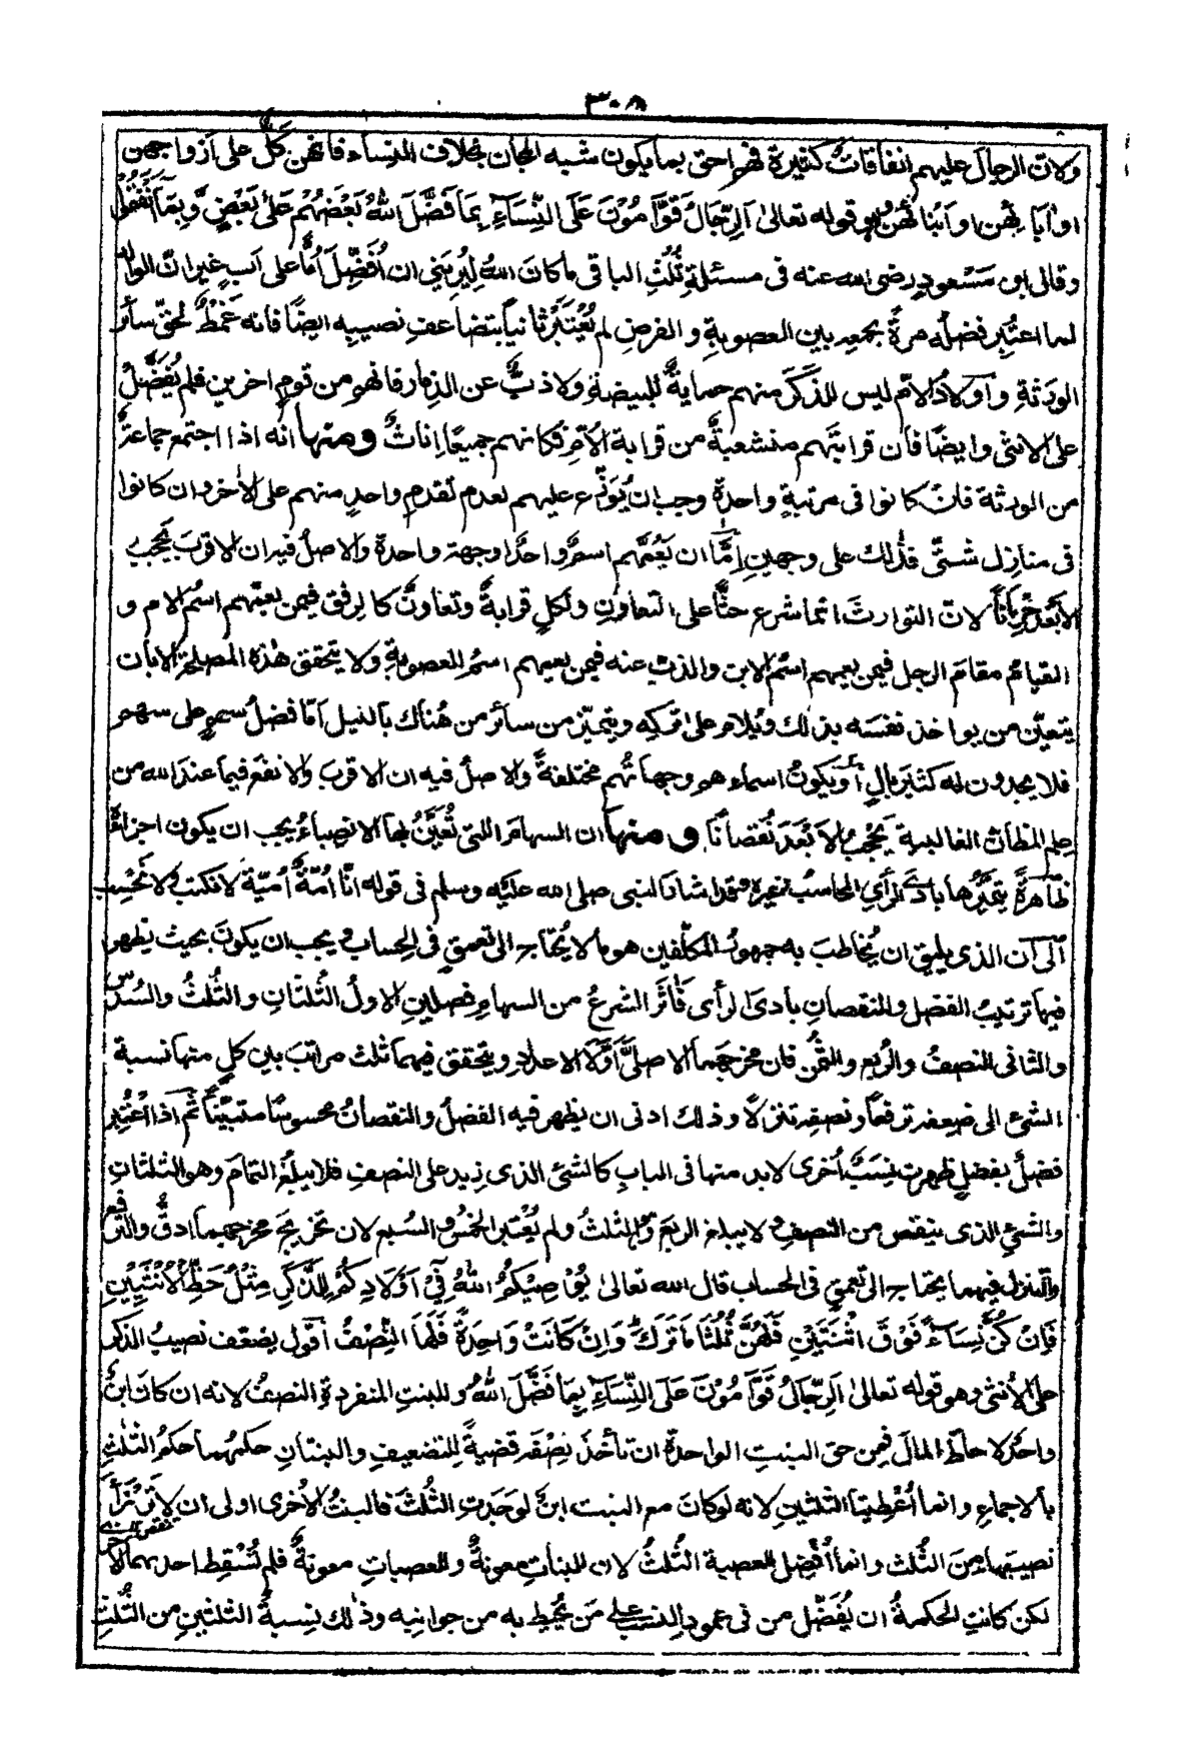 ٣٠٨
ولان الرجال عليهم انفاقات كثيرة فهم احق بما يكون شبه المجان بخلاف النساء فانهن كَلٌّ على ازواجهن
او اٰبائهن او ابنائهن وهو قوله تعالىٰ اَلرِّجَالُ قَوَّامُوْنَ عَلَى النِّسَاءِ بِمَا فَضَّلَ اللهُ بَعْضَهُمْ عَلىٰ بَعْضٍ وَّبِمَا اَنْفَقُوْا
وقال ابن مَسْعودٍ رضى الله عنه فى مسئلةِ ثُلُثِ الباقى ما كان اللهُ لِيُرِيَنى ان اُفَضِّلَ اُمًّا على اَبٍ غير ان الوالد
لما اعتُبِر فضلُه مرةً بجمعِه بين العصوبةِ والفرضِ لم يُعْتَبَرْ ثانيًا بتضاعفِ نصيبِه ايضًا فانه غَمْطٌ لحقِّ سائر
الورثةِ واَولادُ الامّ ليس للذَّكَرِ منهم حمايةٌ للبيضةِ ولا ذبٌّ عن الذِمار فانهم من قومٍ اٰخرين فلم يُفَضَّلْ
على الانثى وايضًا فان قرابتَهم منشعبةٌ من قرابة الاُمّ فكانهم جميعًا اِناثٌ ومنها انه اذا اجتمع جماعةٌ
من الورثة فان كانوا فى مرتبةٍ واحدةٍ وجب ان يُوَزَّع عليهم لعدم تقدمِ واحدٍ منهم على الاٰخر وان كانوا
فى منازل شتّى فذٰلك على وجهينِ اِمَّا ان يَعُمَّهم اسمٌ واحدٌ او جهة واحدة والاصلُ فيه ان الاقربَ يَحْجُبُ
الابعدَ حِرْمانًا لان التوارثَ انما شرع حثًّا على التعاونِ ولكلِ قرابةٌ وتعاونٌ كالرفق فيمن يعمّهم اسمُ الام و
القيام مقامَ الرجل فيمن يعمهم اسمُ الابن والذب عنه فيمن يعمهم اسمُ العصوبةِ ولا يتحقق هٰذه المصلحةُ الا بان
يتعيّن من يواخذ نفسَه بذٰلك ويُلام على تركِه ويتميّز من سائر من هُناك بالنيل اَمّا فضلُ سهمٍ على سهم
فلا يجدون له كثيرَ بالٍ اَو يكونُ اسماءهم وجهاتُهم مختلفةً والاصلُ فيه ان الاقرب والانفع فيما عند الله من
علم المظان الغالبية يَحْجُبُ الابْعَدَ نقصانًا ومنها ان السهامَ اللتى تُعَيَّنُ بها الانصباءُ يجب ان يكون اجزاءً
ظاهرةً يتميَّزُها بادئَ الراي الحاسبُ وغيره وقد اشار النبى صلى الله عليه وسلم فى قوله انّا اُمّةٌ اُمّيةٌ لا نكتب ولا نَحْسُب
الى ان الذى يليق ان يُخاطبَ به جمهورُ المكلفين هو ما لا يُحتاج الى تعمقٍ فى الحساب ويجب ان يكونَ بحيث يظهر
فيها ترتيبُ الفضلِ والنقصانِ بادئَ الرأى فَاٰثَر الشرعُ من السهامِ فصلينِ الاولُ الثلثانِ والثلثُ والسدُس
والثانى النصفُ والرُبع والثُّمُن فان مخرجَهما الاصلىَّ اَوّلا الاعدادِ ويتحقق فيهما ثلث مراتبَ بين كلٍ منها نسبة
الشئ الى ضِعفِه ترفعًا ونصفِه تنزلًا وذٰلك ادنى ان يظهر فيه الفضلُ والنقصانُ محسوسًا متبيّنًا ثم اذا اُعْتُبِر
فضلٌ بفضلٍ ظهرت نِسَبٌ اُخرى لا بد منها فى البابِ كالشئِ الذى زِيد على النصفِ فلا يبلُغ التمامَ وهو الثلثان
والشئِ الذى ينقص من النصفِ ولا يبلغ الربعَ وهو الثلثُ ولم يُعْتَبَر الخمُسُ والسُبع لان تخريجَ مخرجِهما ادقُّ والترفع
والتنزل فيهما يحتاج الى تعمقٍ فى الحساب قال الله تعالىٰ يُوْصِيْكُمُ اللهُ فِىْ اَوْلَادِكُمْ لِلذَّكَرِ مِثْلُ حَظِّ الْاُنْثَيَيْنِ
فَاِنْ كُنَّ نِسَاءً فَوْقَ اثْنَتَيْنِ فَلَهُنَّ ثُلُثَا مَا تَرَكَ وَاِنْ كَانَتْ وَاحِدَةً فَلَهَا النِّصْفُ اَقول يضعّف نصيبُ الذكر
على الاُنثى وهو قوله تعالىٰ اَلرِّجَالُ قَوَّامُوْنَ عَلَى النِّسَاءِ بِمَا فَضَّلَ اللهُ وللبنتِ المنفردةِ النصفُ لانه ان كان ابنٌ
واحدٌ لاحاطَ المالَ فمِن حق البنتِ الواحدةِ ان تأخُذَ نِصْفَه قضيةً للتضعيفِ والبنتانِ حكمُهما حكمُ الثلثِ
بالاجماع وانما اُعْطِيَتا الثلثين لانه لو كان مع البنت ابنٌ لوَجَدتِ الثُلثَ فالبنتُ الاُخرى اولى ان لا تَرْزَأ
نصيبَها من الثُلث وانما اُفْضِلَ للعصبة الثُلثُ لان للبناتِ معونةً وللعصباتِ معونةً فلم تُسْقِط احدٰهما الاُ
لكن كانتِ الحكمةُ ان يُفَضَّل من فى عمودِ النسب على مَن يُحيط به من جوانبِه وذٰلك نِسبةُ الثلثين من الثُلثِ